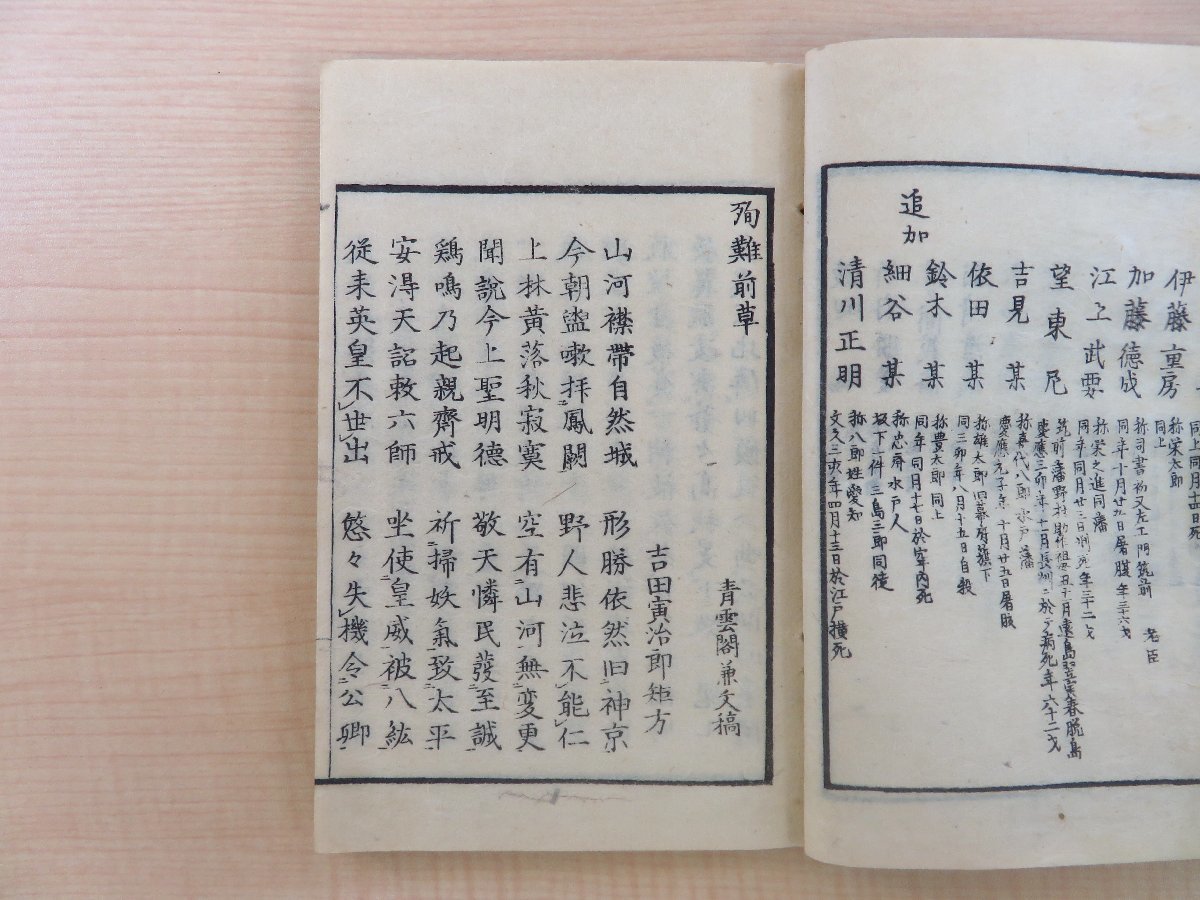 伊藤重房
称栄太郎
同上
加藤徳成
称司書初又左エ門筑前 老臣
同年十月廿五日屠腹年三十六才
江上武要
称栄之進同藩
同年同月廿三日刎死年三十二才
望東尼
慶應三卯年十一月長州ニ於テ病死年六十二才
吉見某
称喜代八郎水戸藩
慶應元子年十月廿五日屠腹
依田某
称雄太郎旧幕府籏下
同三卯年八月十五日自殺
追加
鈴木某
称豊太郎同上
同年同月十七日於牢内死
細谷某
称忠斎水戸人
坂下一件三島三郎同徒
清川正明
称八郎姓愛知
文久三亥年四月十三日於江戸横死
殉難前草
青雲閣兼文稿
吉田寅治郎矩方
山河襟帯自然城 形勝依然旧神京
今朝盥嗽拝鳳闕 野人悲泣不能仁
上林黄落秋寂寞 空有山河無変更
聞説今上聖明徳 敬天憐民發至誠
鶏鳴乃起親齊戒 祈掃妖氣致太平
安淂天詔敕六師 坐使皇威被八紘
従来英皇不世出 悠々失機今公卿